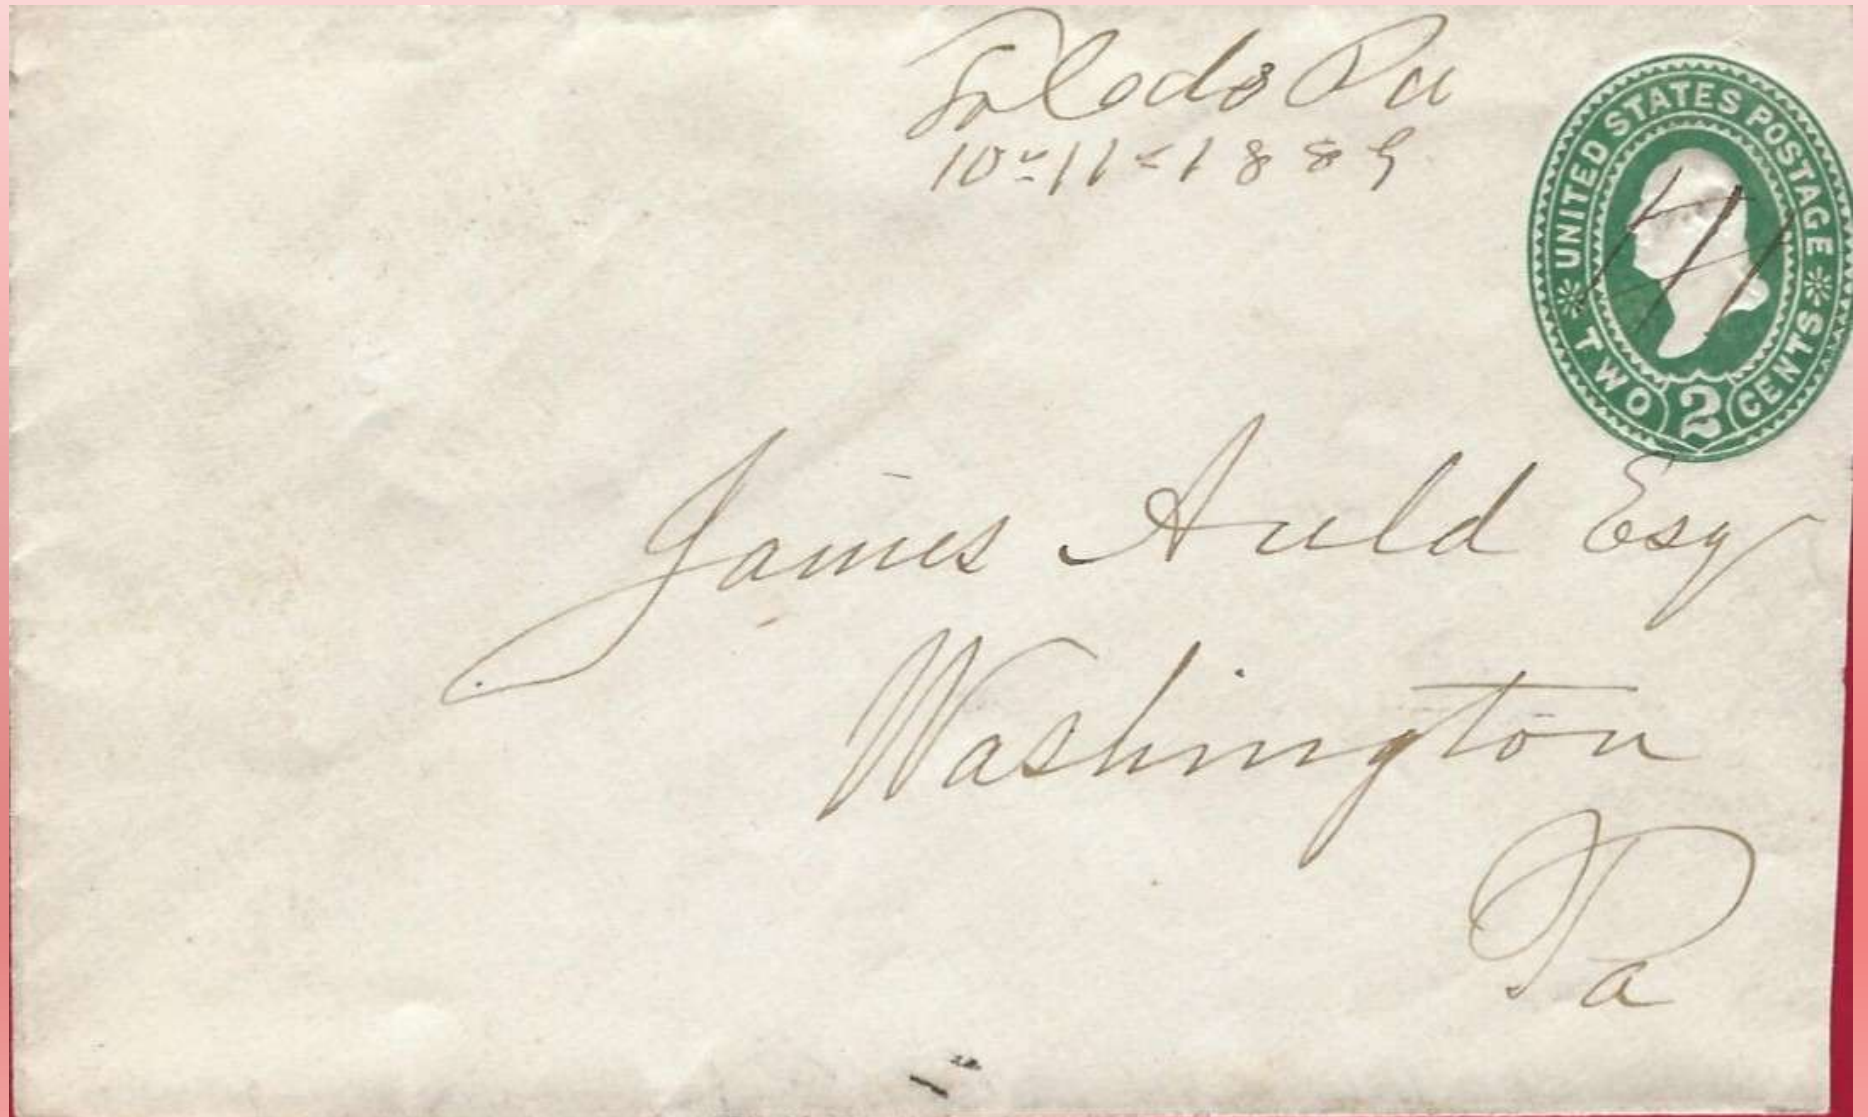 Toledo Pa
10-11-1889
UNITED STATES POSTAGE
TWO 2 CENTS
James Auld Esq
Washington
Pa